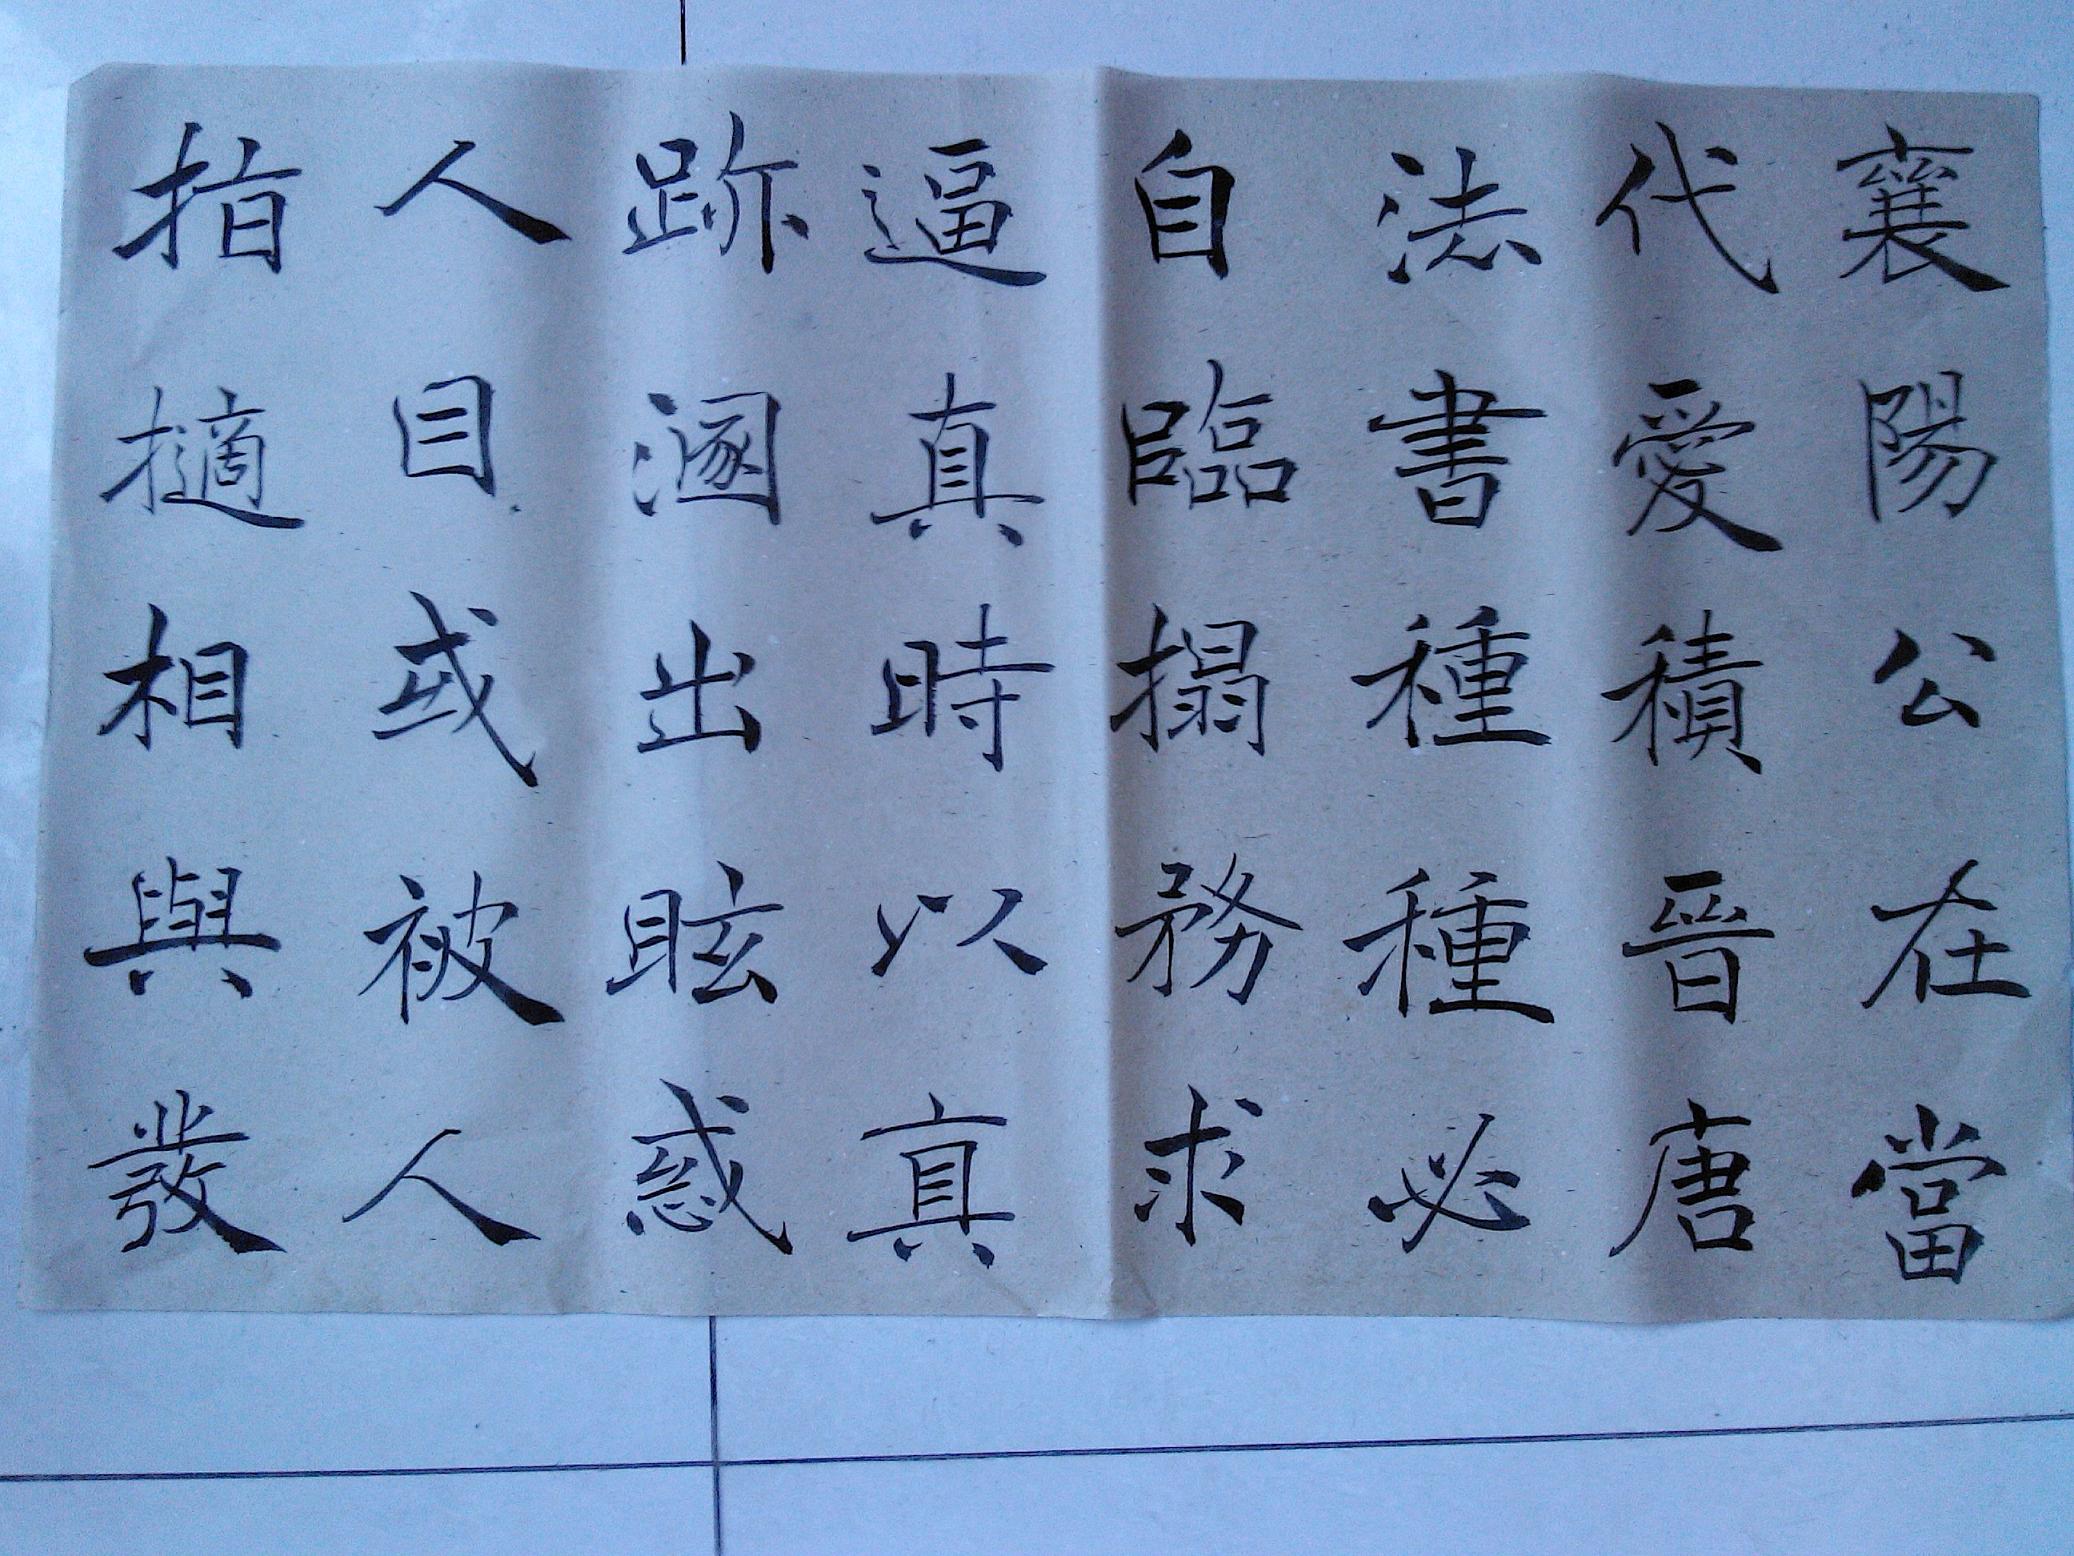 襄陽公在當
代愛積晉唐
法書種種必
自臨搨務求
逼真時以真
跡溷出眩惑
人目或被人
指擿相與發